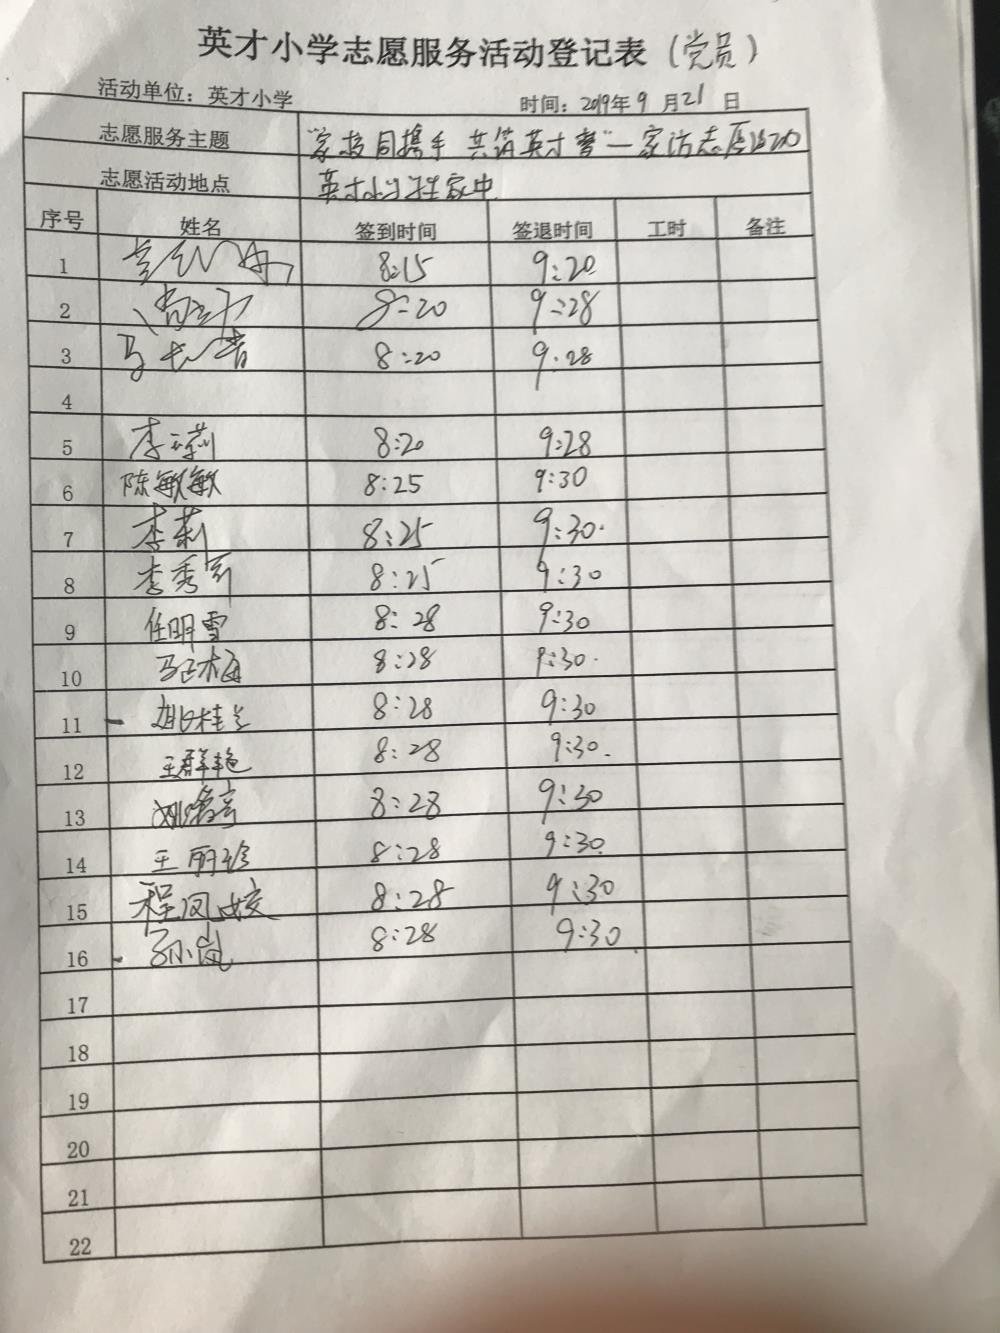 英才小学志愿服务活动登记表（党员）
活动单位：英才小学 时间：2019年9月21日
志愿服务主题 "家校同携手 共筑英才梦"—家访志愿活动
志愿活动地点 英才小学学生家中
序号 姓名 签到时间 签退时间 工时 备注
1 8:15 9:20
2 8:20 9:28
3 马 8:20 9:28
4
5 李 莉 8:20 9:28
6 陈敏敏 8:25 9:30
7 李莉 8:25 9:30
8 李秀 8:25 9:30
9 任明雪 8:28 9:30
10 马 梅 8:28 9:30
11 桂兰 8:28 9:30
12 王群艳 8:28 9:30
13 8:28 9:30
14 王丽珍 8:28 9:30
15 程凤姣 8:28 9:30
16 孙岚 8:28 9:30
17
18
19
20
21
22